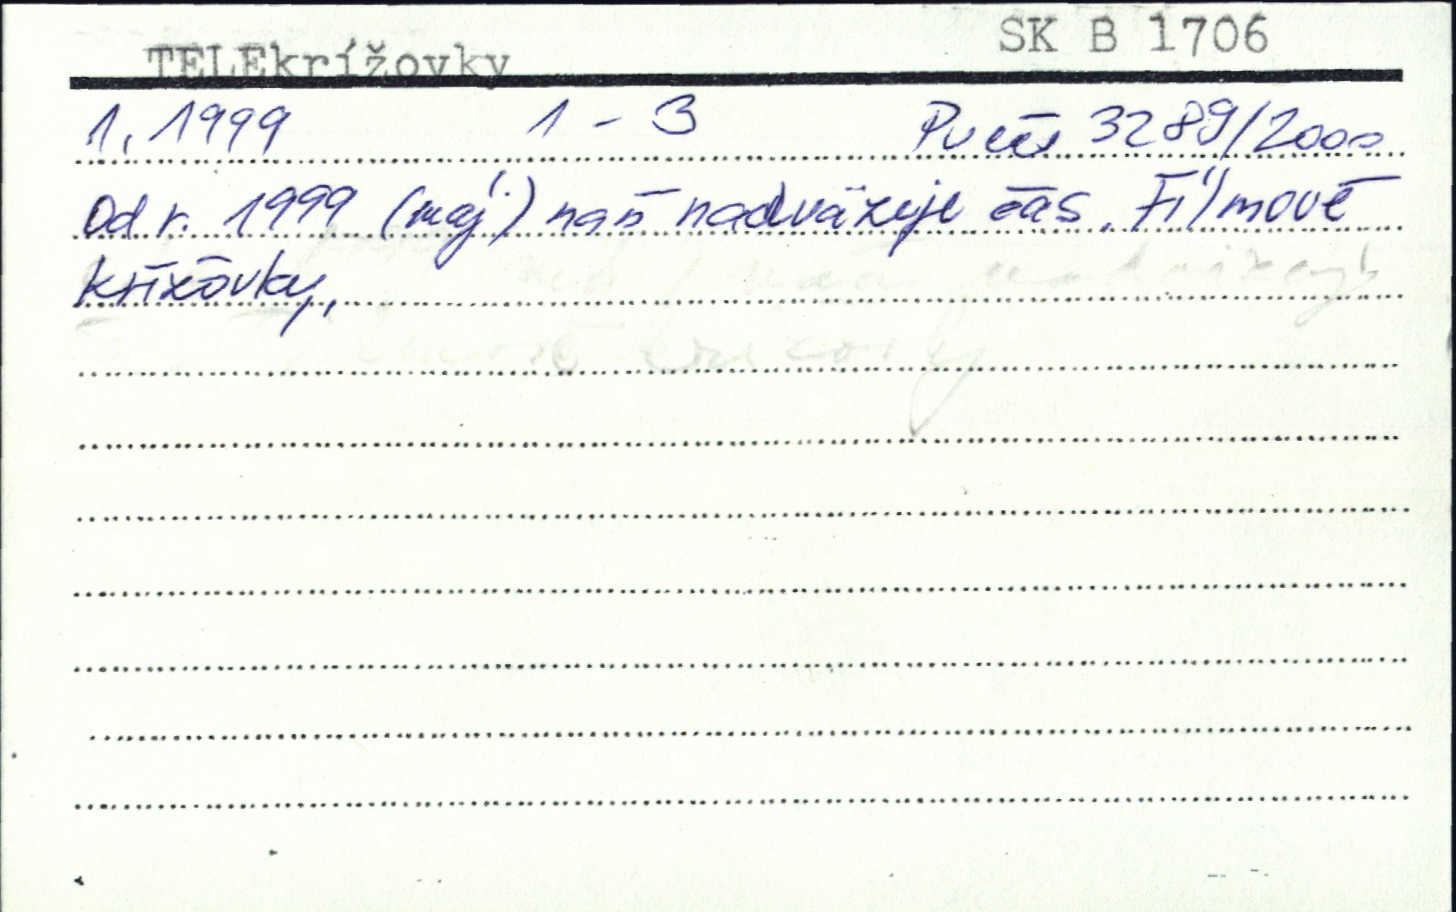 TELEkrížovky SK B 1706
1, 1999 1 - 3 3289/2000
Od r. 1999 (máj) naň nadväzuje čas. Filmové
krížovky.